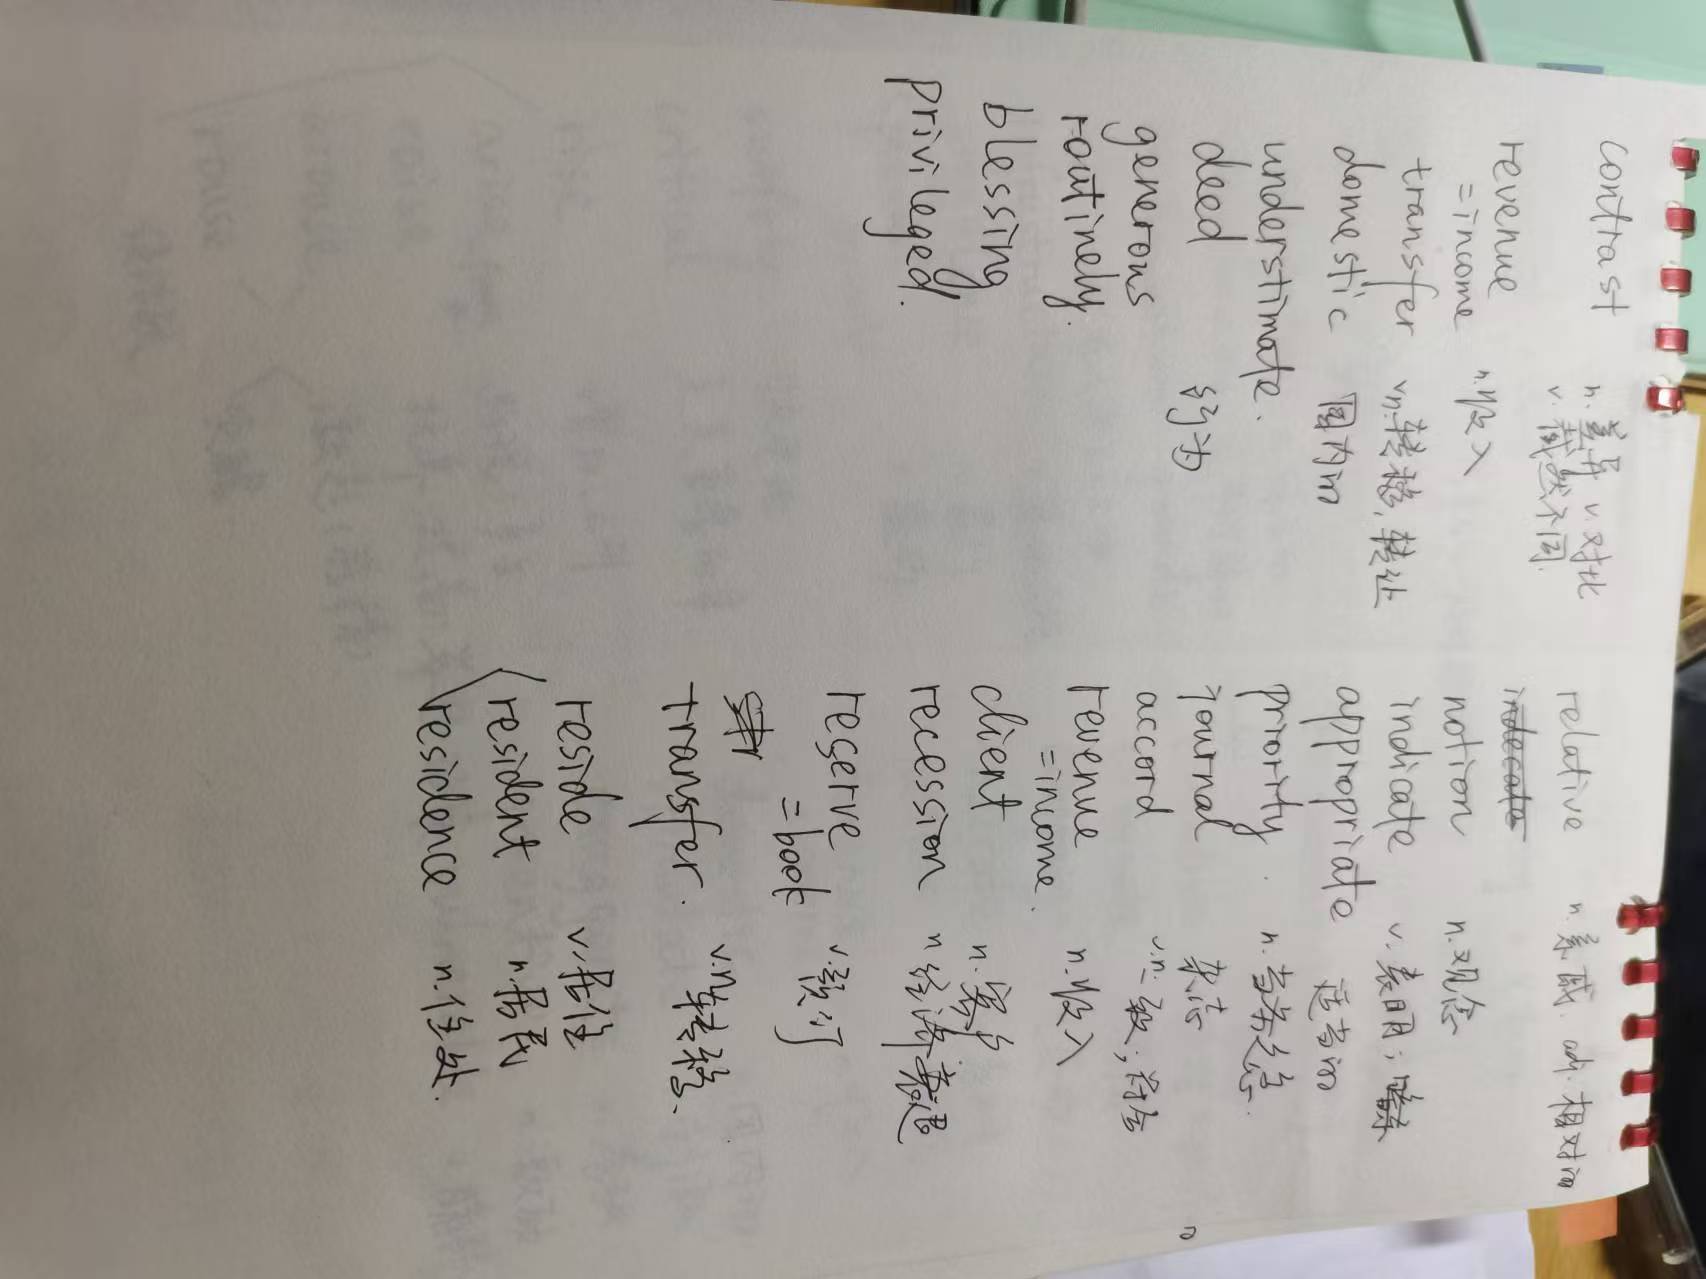 contrast n.差异 v.对比
v.截然不同.
revenue n.收入
=income
transfer vn.转移,转让
domestic 国内的
understimate.
deed 行为
generous
routinely.
blessing
privileged.
relative n.亲戚. adj.相对的
notion n.观念
indicate v.表明;暗示
appropriate 适当的
priority. n.当务之急.
journal 杂志
accord v.n.一致;符合
revenue n.收入
=income.
client n.客户
recession n 经济衰退
reserve v.预订
=book
transfer. v.n.转移.
reside v.居住
resident n.居民
residence n.住处.